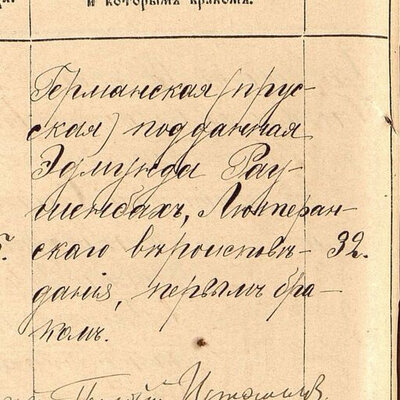 и которымъ бракомъ.
Германская (прус-
ская) подданная
Эдмунда Рау-
шенбахъ, Лютеран-
скаго вѣроисповѣ- 32.
данія, первымъ бра-
комъ.